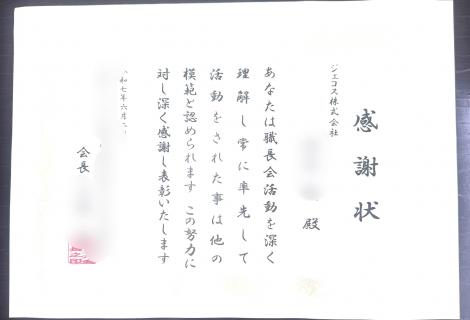 感謝状
ジェコス株式会社
殿
あなたは職長会活動を深く
理解し常に率先して
活動をされた事は他の
模範と認められます この努力に
対し深く感謝し表彰いたします
和七年六月
会長